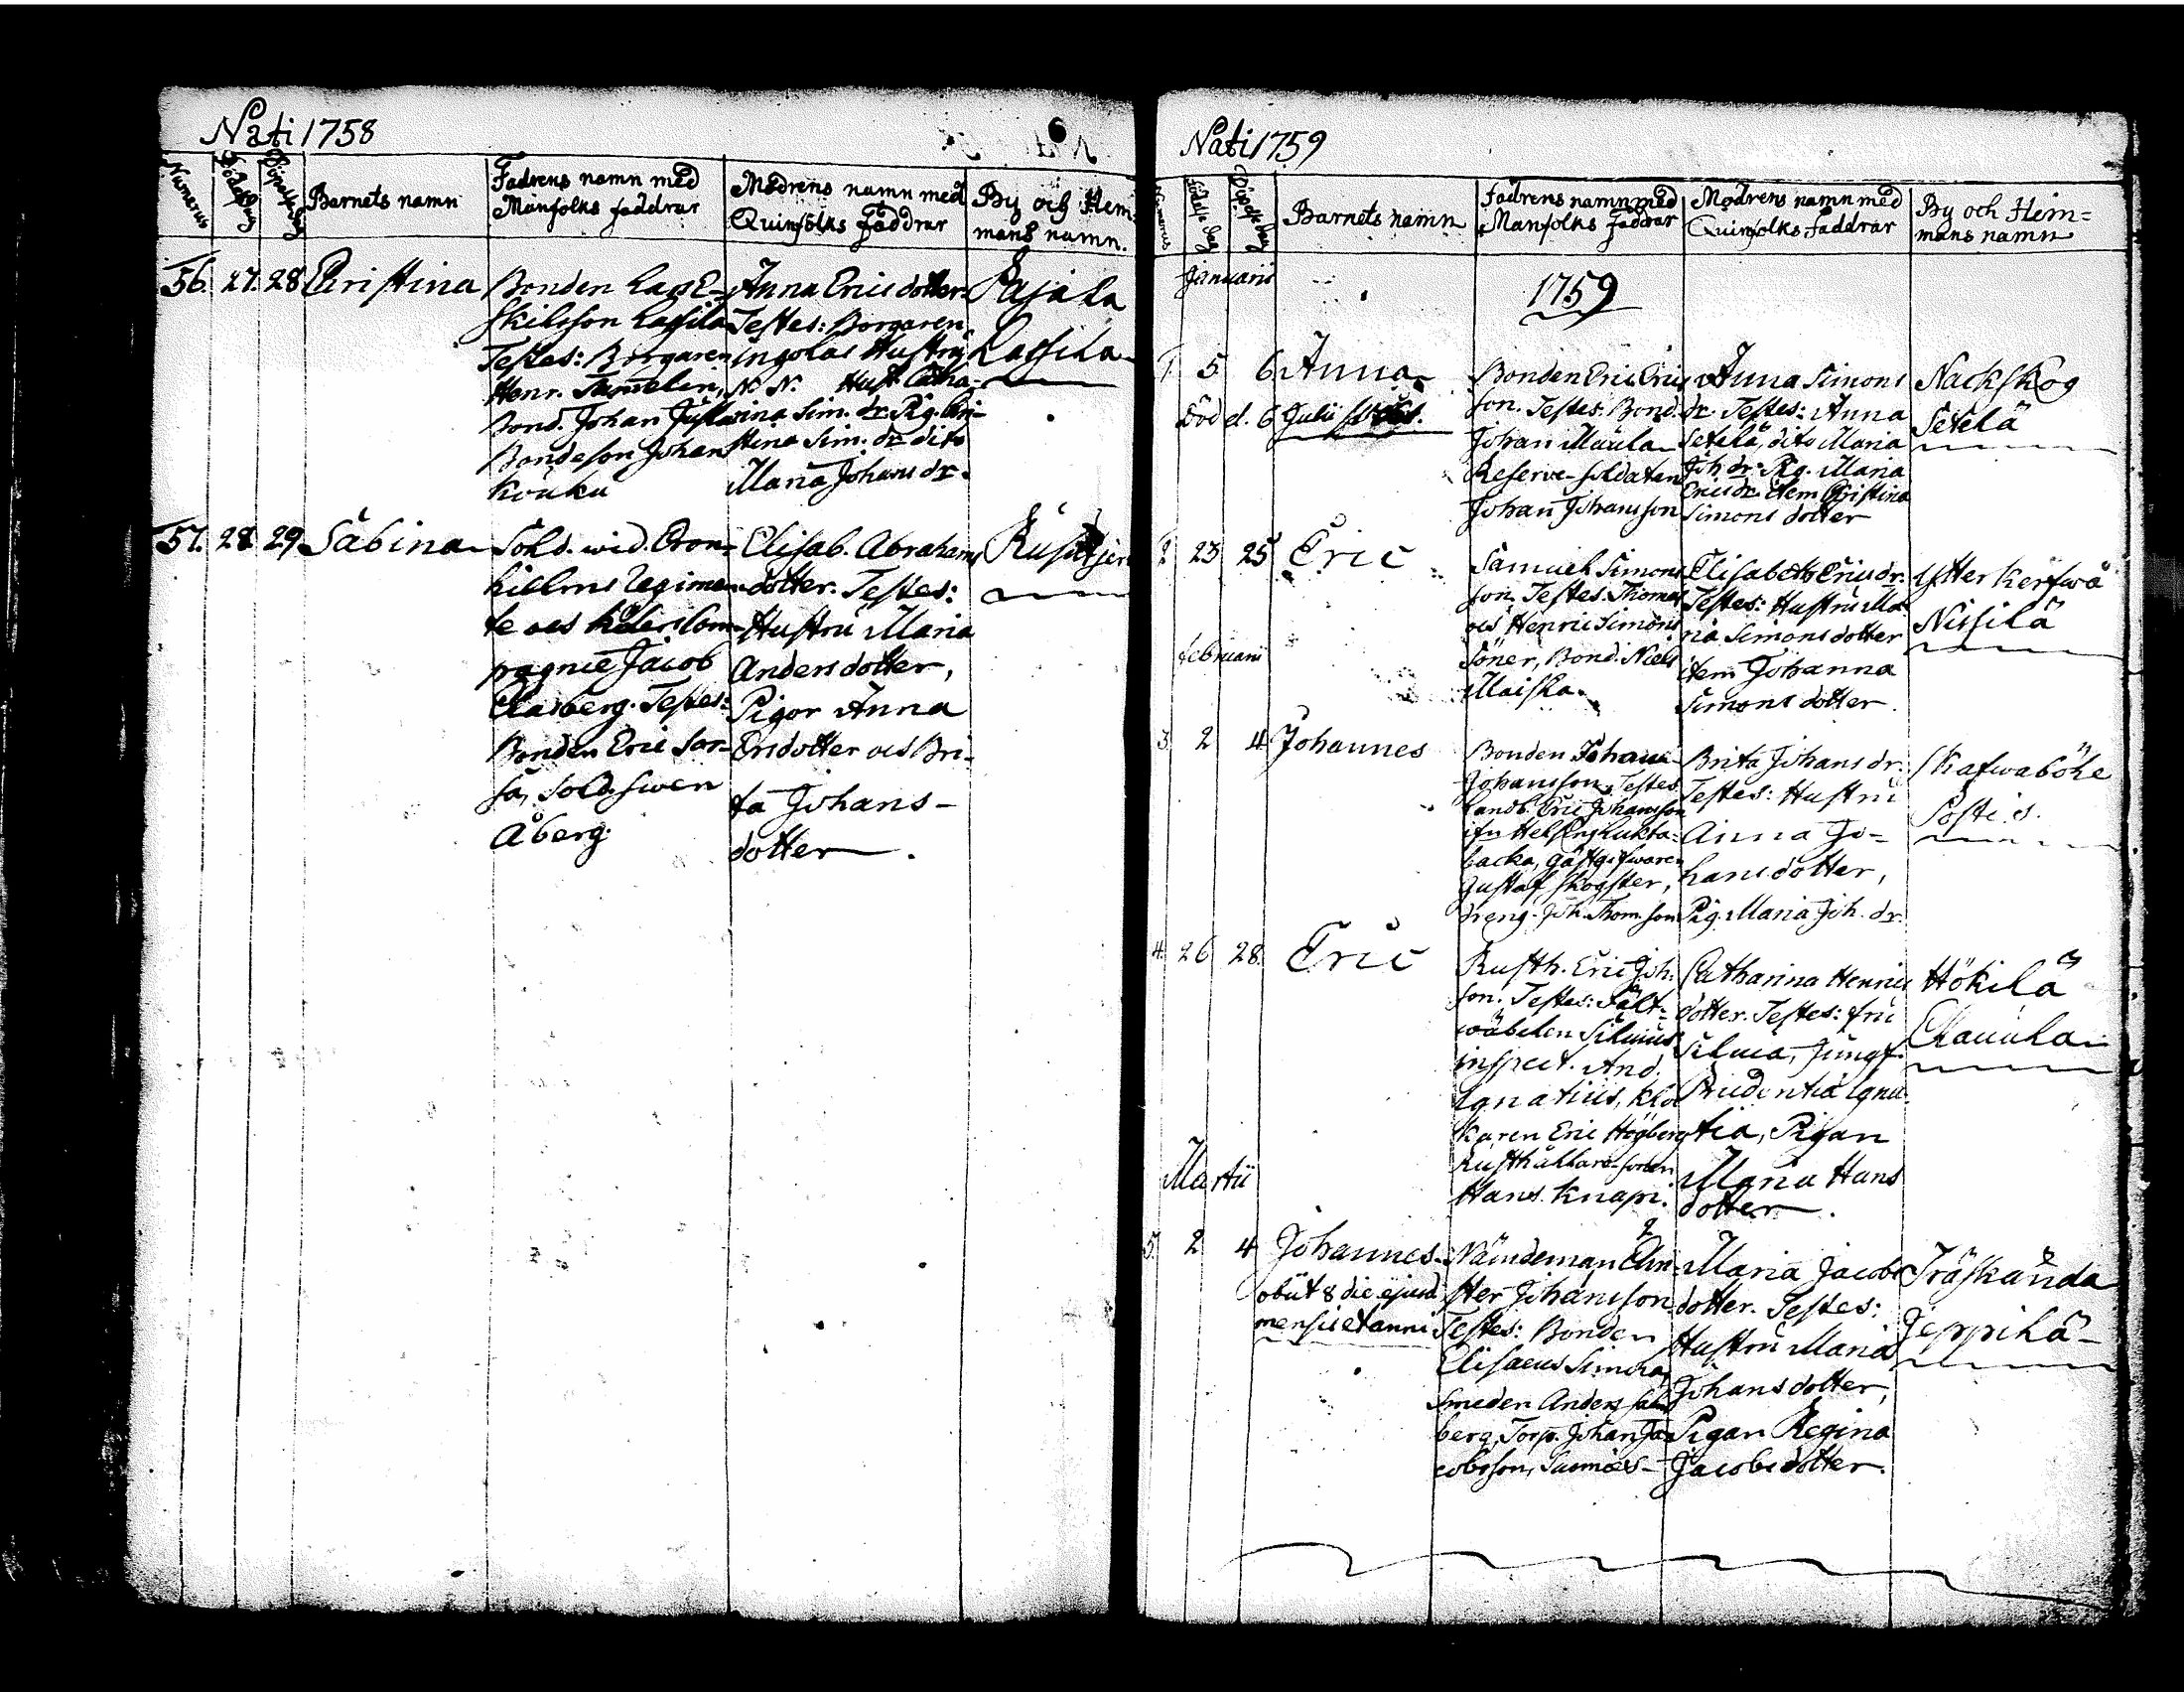 Nati 1758
Numerus
Födelsedag
Döpelsedag
Barnets namn
Fadrens namn med
Manfolks faddrar
Modrens namn med
Quinfolks faddrar
By och Hem=
mans namn.
56. 27. 28 Christina
Bonden Lars E-
skilsson Lassila
Testes: Borgaren
Henr.
Bond. Johan Jussila
Bondeson Johan
Kouku
Anna Erics dotter.
Testes: Borgaren
Ingolas Hustru
N. N. Hust. Catha-
rina Sim. dr. Pig. Chri-
stina Sim. dr dito
Maria Johans dr.
Pajala
Lassila
57. 28. 29 Sabina
Sold. wid. Cron-
hielms Regimen-
te och Com-
pagnie Jacob
Clasberg. Testes:
Bonden Eric Sor-
sa, Sold. Swen
Åberg.
Elisab. Abrahams
dotter. Testes:
Hustru Maria
Andersdotter,
Pigor Anna
Ersdotter och Bri-
ta Johans-
dotter.
Nati 1759
Numerus
Födelsedag
Döpelsedag
Barnets namn
Fadrens namn med
Manfolks faddrar
Modrens namn med
Quinfolks faddrar
By och Hem=
mans namn
Januarii
1759
1. 5 6 Anna
Död d. 6 Julii
Bonden Eric Erics
son. Testes: Bond.
Johan Maula
Reserve-soldaten
Johan Johansson
Anna Simons
dr. Testes: Anna
Setelä, dito Maria
Joh. dr. Pig. Maria
Erics dr. item Christina
Simons dotter
Nackskog
Setelä
2. 23 25 Eric
Samuel Simons
son. Testes. Thomas
och Henric Simons
Söner, Bond. Niels
Maiska.
Elisabeth Erics dr.
Testes: Hustru Ma
ria Simons dotter
item Johanna
Simons dotter.
Ytter Kerfwä
Nissilä
Februarii
3. 2 4 Johannes
Bonden Johan
Johansson, Testes
Landb. Eric Johansson
ifn Helsing Lukta-
backa, Gästgifwaren
Gustaf Skogster,
dreng. Joh. Thom. son
Brita Johans dr.
Testes: Hustru
Anna Jo-
hansdotter,
Pig. Maria Joh. dr.
Skafwaböhle
4. 26 28. Eric
Rusth. Eric Joh.
son. Testes: Fält-
wäbelen Silvius
inspect. And.
Ignatius, Klo
karen Eric Högberg
Rusthållare-sonen
Hans Knapi.
Catharina Henrics
dotter. Testes: fru
Silvia, Jungf.
Prudentia Igna-
tia, Pigan
Maria Hans
dotter.
Hökilä
Clauula
Martii
5. 2 4 Johannes
obiit 8 die ejusd.
mensis et anni
Nämdeman Chri-
ster Johansson.
Testes: Bonden
Elisaeus Simola,
Smeden Anders Sahl
berg, Torp. Johan Ja-
cobsson,
Maria Jacobs
dotter. Testes:
Hustru Maria
Johansdotter,
Pigan Regina
Jacobsdotter.
Träskända
Jeppilä